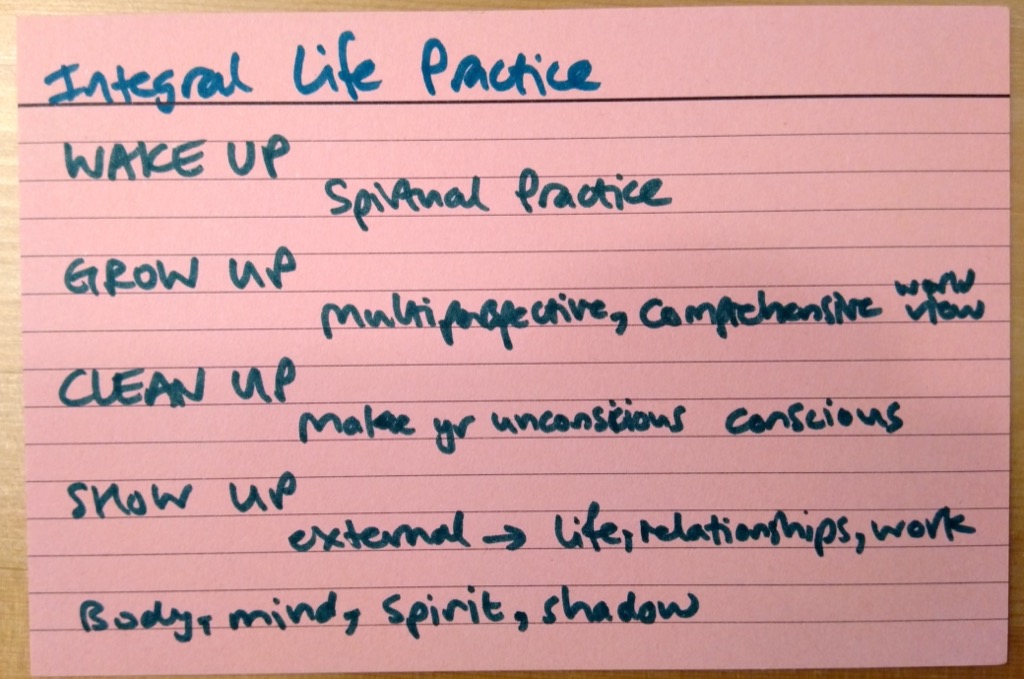 Integral Life Practice
WAKE UP
Spiritual Practice
GROW UP
multiperspective, comprehensive world view
CLEAN UP
make yr unconscious conscious
SHOW UP
external → life, relationships, work
Body, mind, spirit, shadow